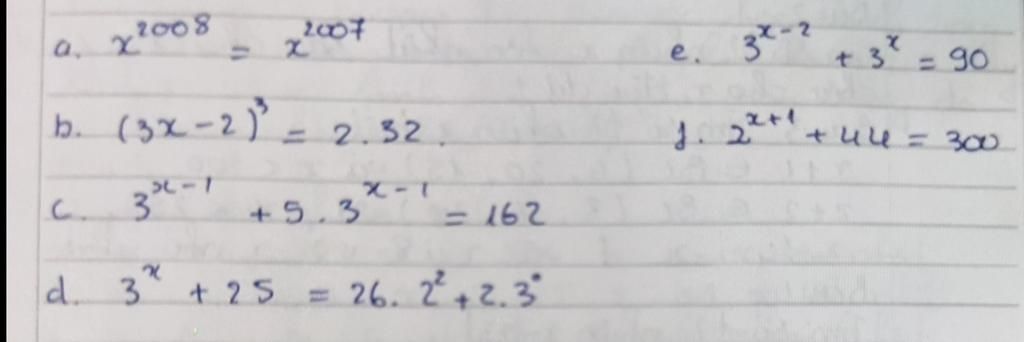 a. x^2008 = x^2007
e. 3^x-2 + 3^x = 90
b. (3x-2)^3 = 2.32.
f. 2^x+1 + 44 = 300
c. 3^x-1 + 5.3^x-1 = 162
d. 3^x + 25 = 26.2^2 + 2.3^0